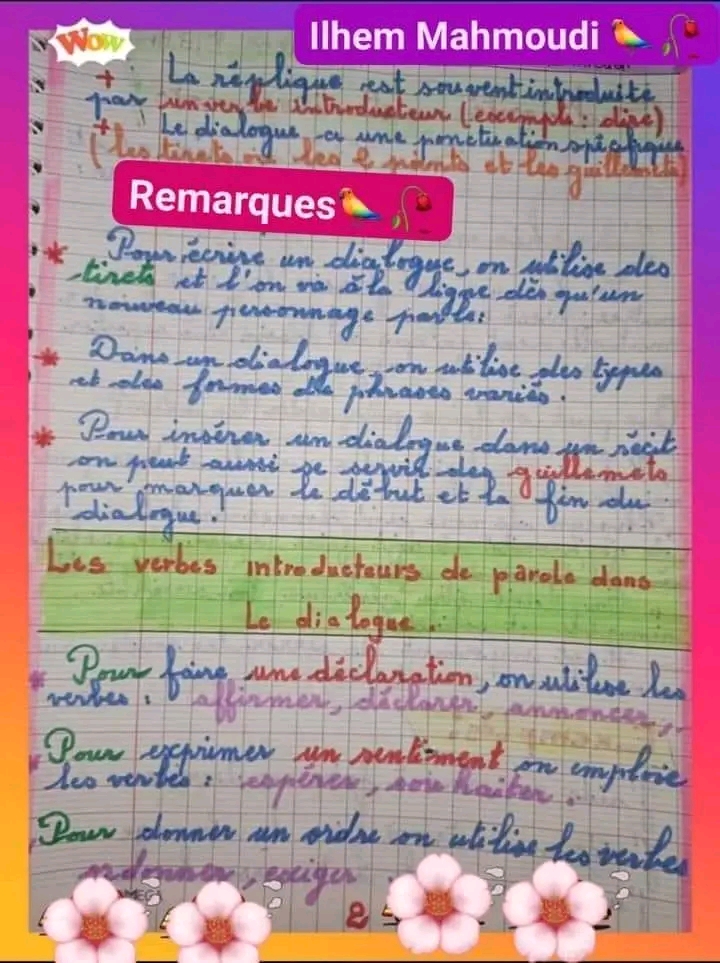 WOW
Ilhem Mahmoudi
+ La réplique est souvent introduite
par un verbe introducteur (exemple : dire)
+ Le dialogue a une ponctuation spécifique
(les tirets ou les 2 points et les guillemets)
Remarques
* Pour écrire un dialogue, on utilise des
tirets et l'on va à la ligne dès qu'un
nouveau personnage parle:
* Dans un dialogue, on utilise des types
et des formes de phrases variés.
* Pour insérer un dialogue dans un récit
on peut aussi se servir des guillemets
pour marquer le début et la fin du
dialogue.
Les verbes introducteurs de parole dans
Le dialogue.
* Pour faire une déclaration, on utilise les
verbes : affirmer, déclarer, annoncer,
* Pour exprimer un sentiment on emploie
les verbes : espérer, souhaiter.
Pour donner un ordre on utilise les verbes
ordonner, exiger
2